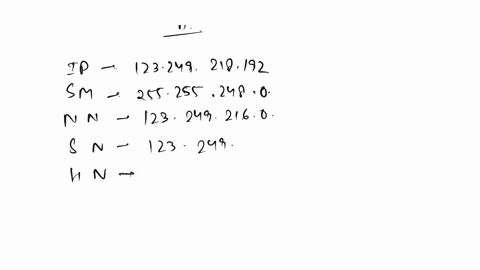 IP → 123.249. 218.192
SM → 255.255.248.0.
NN → 123.249.216.0.
SN → 123. 249.
HN →